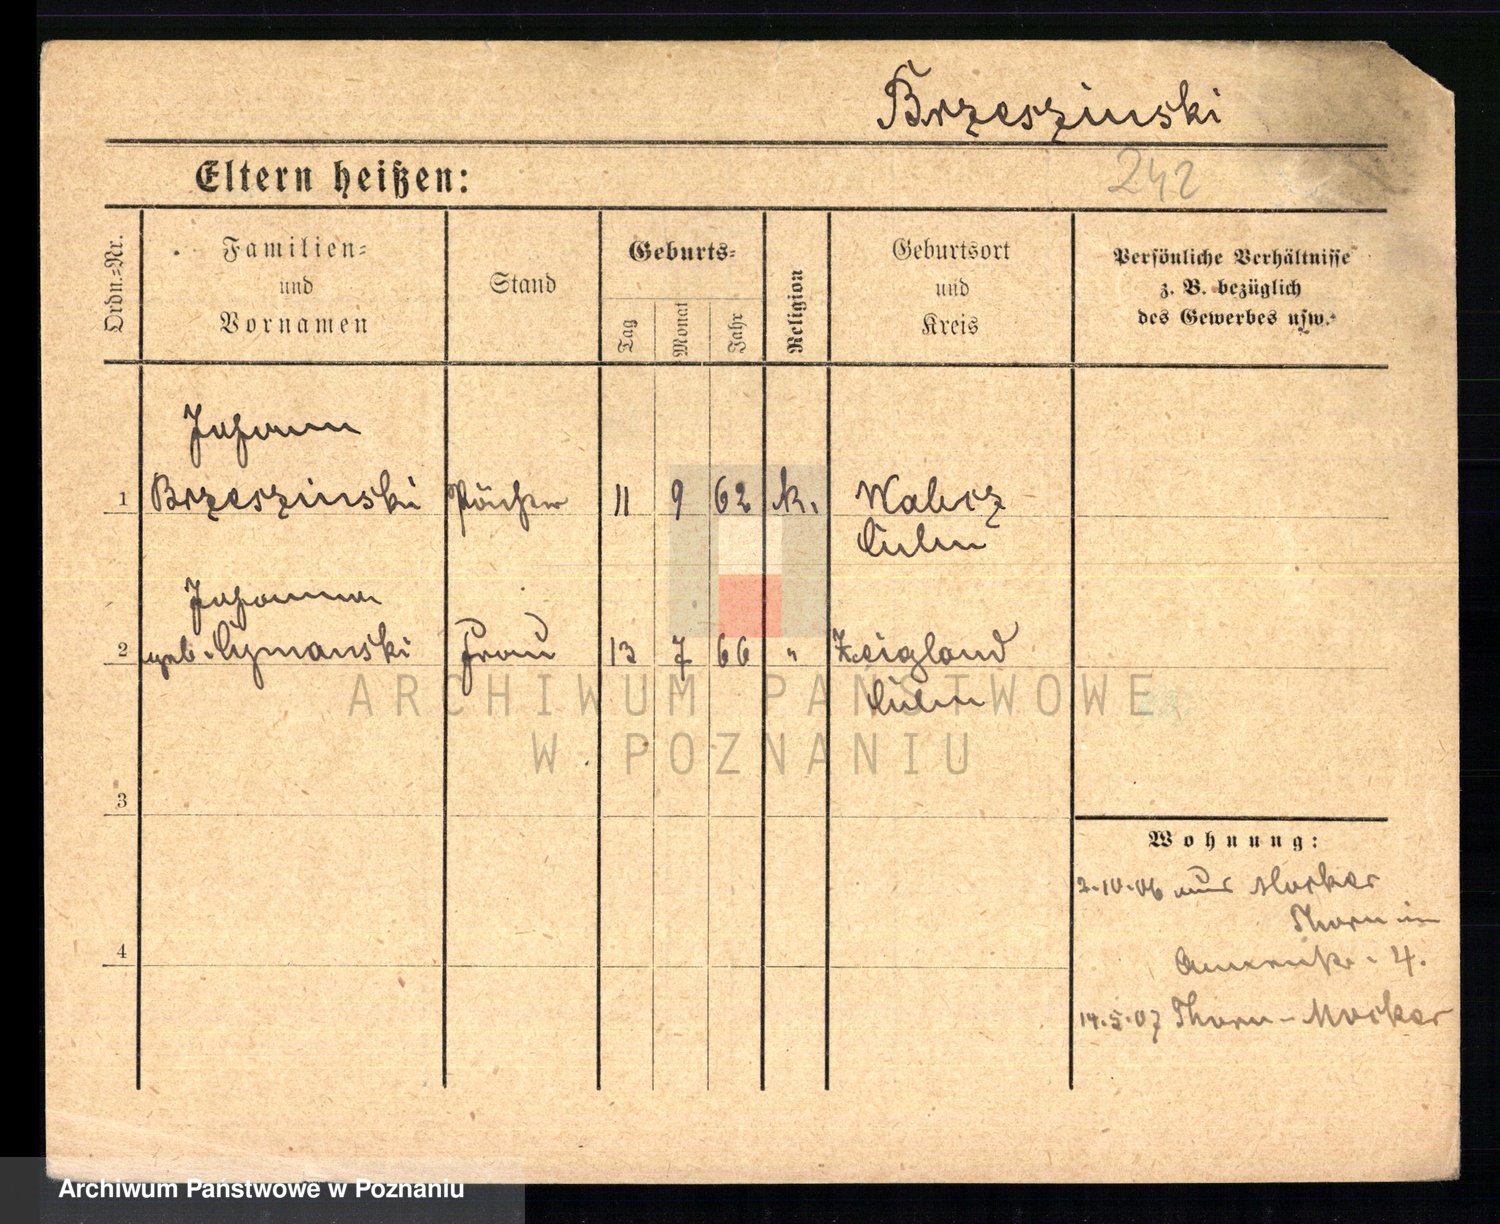 Brzeszinski
Eltern heißen:
242
Ordn.=Nr.
Familien=
und
Vornamen
Stand
Geburts=
Tag
Monat
Jahr
Religion
Geburtsort
und
Kreis
Persönliche Verhältnisse
z. B. bezüglich
des Gewerbes usw.
Johann
1 Brzeszinski Pächter 11 9 62 k.
Culm
Johanna
2 geb. Cymanski Frau 13 7 66 "
Culm
ARCHIWUM PAŃSTWOWE
W POZNANIU
3
Wohnung:
2.10.06 Mocker
Thorn
4.
4
14.5.07 Thorn-Mocker
Archiwum Państwowe w Poznaniu